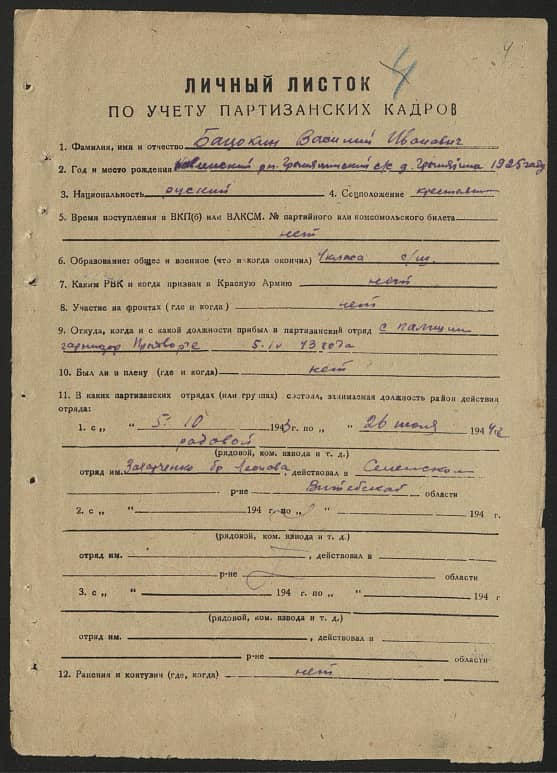 4
4
ЛИЧНЫЙ ЛИСТОК
ПО УЧЕТУ ПАРТИЗАНСКИХ КАДРОВ
1. Фамилия, имя и отчество Василий Иванович
2. Год и место рождения с/с д. 1925 году
3. Национальность руский 4. Соцположение
5. Время поступления в ВКП(б) или ВЛКСМ. № партийного или комсомольского билета
нет
6. Образование: общее и военное (что и когда окончил) 4 класа с/ш.
7. Каким РВК и когда призван в Красную Армию нет
8. Участие на фронтах (где и когда) нет
9. Откуда, когда и с какой должности прибыл в партизанский отряд с
5.IV 43 года
10. Был ли в плену (где и когда) нет
11. В каких партизанских отрядах (или группах) состоял, занимаемая должность район действия
отряда:
1. с „ 5 " 1943 г. по „ 26 июля 194 г.
радовой
(рядовой, ком. взвода и т. д.)
отряд им. Захарченко бр Леонова, действовал в
р-не Витебской области
2. с „ " 194 г. по „ " 194 г.
(рядовой, ком. взвода и т. д.)
отряд им. , действовал в
р-не области
3. с „ " 194 г. по „ " 194 г
(рядовой, ком. взвода и т. д.)
отряд им. , действовал в
р-не области
12. Ранения и контузии (где, когда) нет